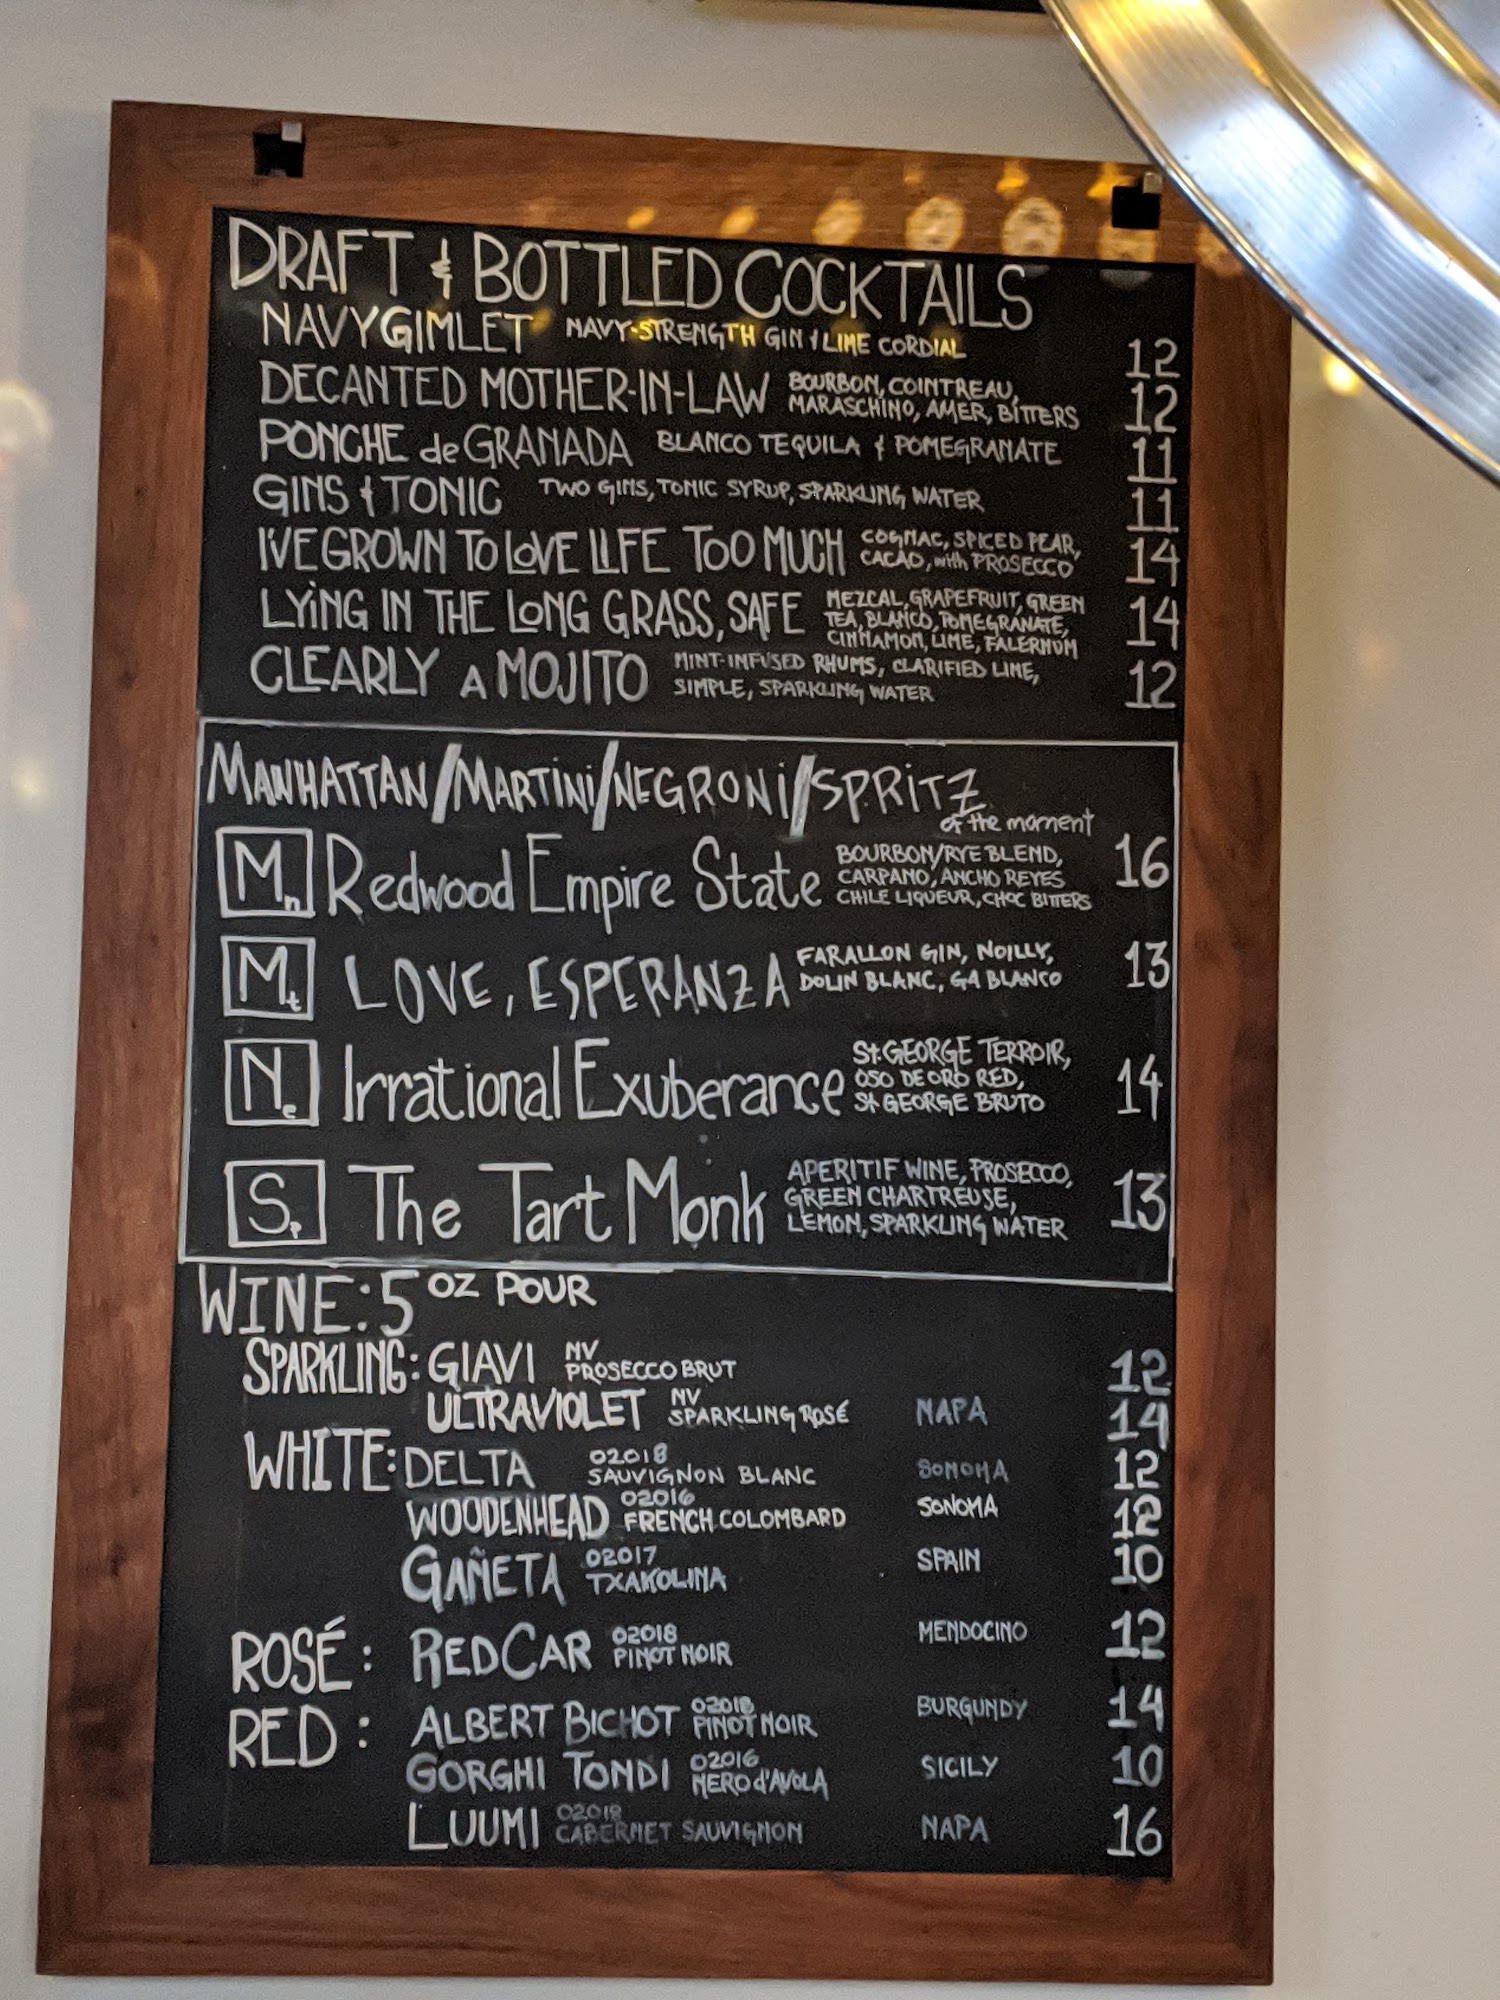 DRAFT & BOTTLED COCKTAILS
NAVY GIMLET NAVY-STRENGTH GIN & LIME CORDIAL 12
DECANTED MOTHER-IN-LAW BOURBON, COINTREAU,
MARASCHINO, AMER, BITTERS 12
PONCHE de GRANADA BLANCO TEQUILA & POMEGRANATE 11
GINS & TONIC TWO GINS, TONIC SYRUP, SPARKLING WATER 11
I'VE GROWN TO LOVE LIFE TOO MUCH COGNAC, SPICED PEAR,
CACAO, with PROSECCO 14
LYING IN THE LONG GRASS, SAFE MEZCAL, GRAPEFRUIT, GREEN
TEA, BLANCO, POMEGRANATE, 14
CINNAMON, LIME, FALERNUM
CLEARLY A MOJITO MINT-INFUSED RHUMS, CLARIFIED LIME,
SIMPLE, SPARKLING WATER 12
MANHATTAN/MARTINI/NEGRONI/SPRITZ
of the moment
Mn Redwood Empire State BOURBON/RYE BLEND, 16
CARPANO, ANCHO REYES
CHILE LIQUEUR, CHOC BITTERS
Mt LOVE, ESPERANZA FARALLON GIN, NOILLY, 13
DOLIN BLANC, G4 BLANCO
Ne Irrational Exuberance St. GEORGE TERROIR,
OSO DE ORO RED, 14
St GEORGE BRUTO
Sp The Tart Monk APERITIF WINE, PROSECCO,
GREEN CHARTREUSE, 13
LEMON, SPARKLING WATER
WINE: 5 OZ POUR
SPARKLING: GIAVI NV
PROSECCO BRUT 12
ULTRAVIOLET NV
SPARKLING ROSÉ NAPA 14
WHITE: DELTA 02018
SAUVIGNON BLANC SONOMA 12
WOODENHEAD 02016
FRENCH COLOMBARD SONOMA 12
GAÑETA 02017
TXAKOLINA SPAIN 10
ROSÉ: RED CAR 02018
PINOT NOIR MENDOCINO 12
RED: ALBERT BICHOT 02018
PINOT NOIR BURGUNDY 14
GORGHI TONDI 02016
NERO d'AVOLA SICILY 10
LUUMI 02018
CABERNET SAUVIGNON NAPA 16